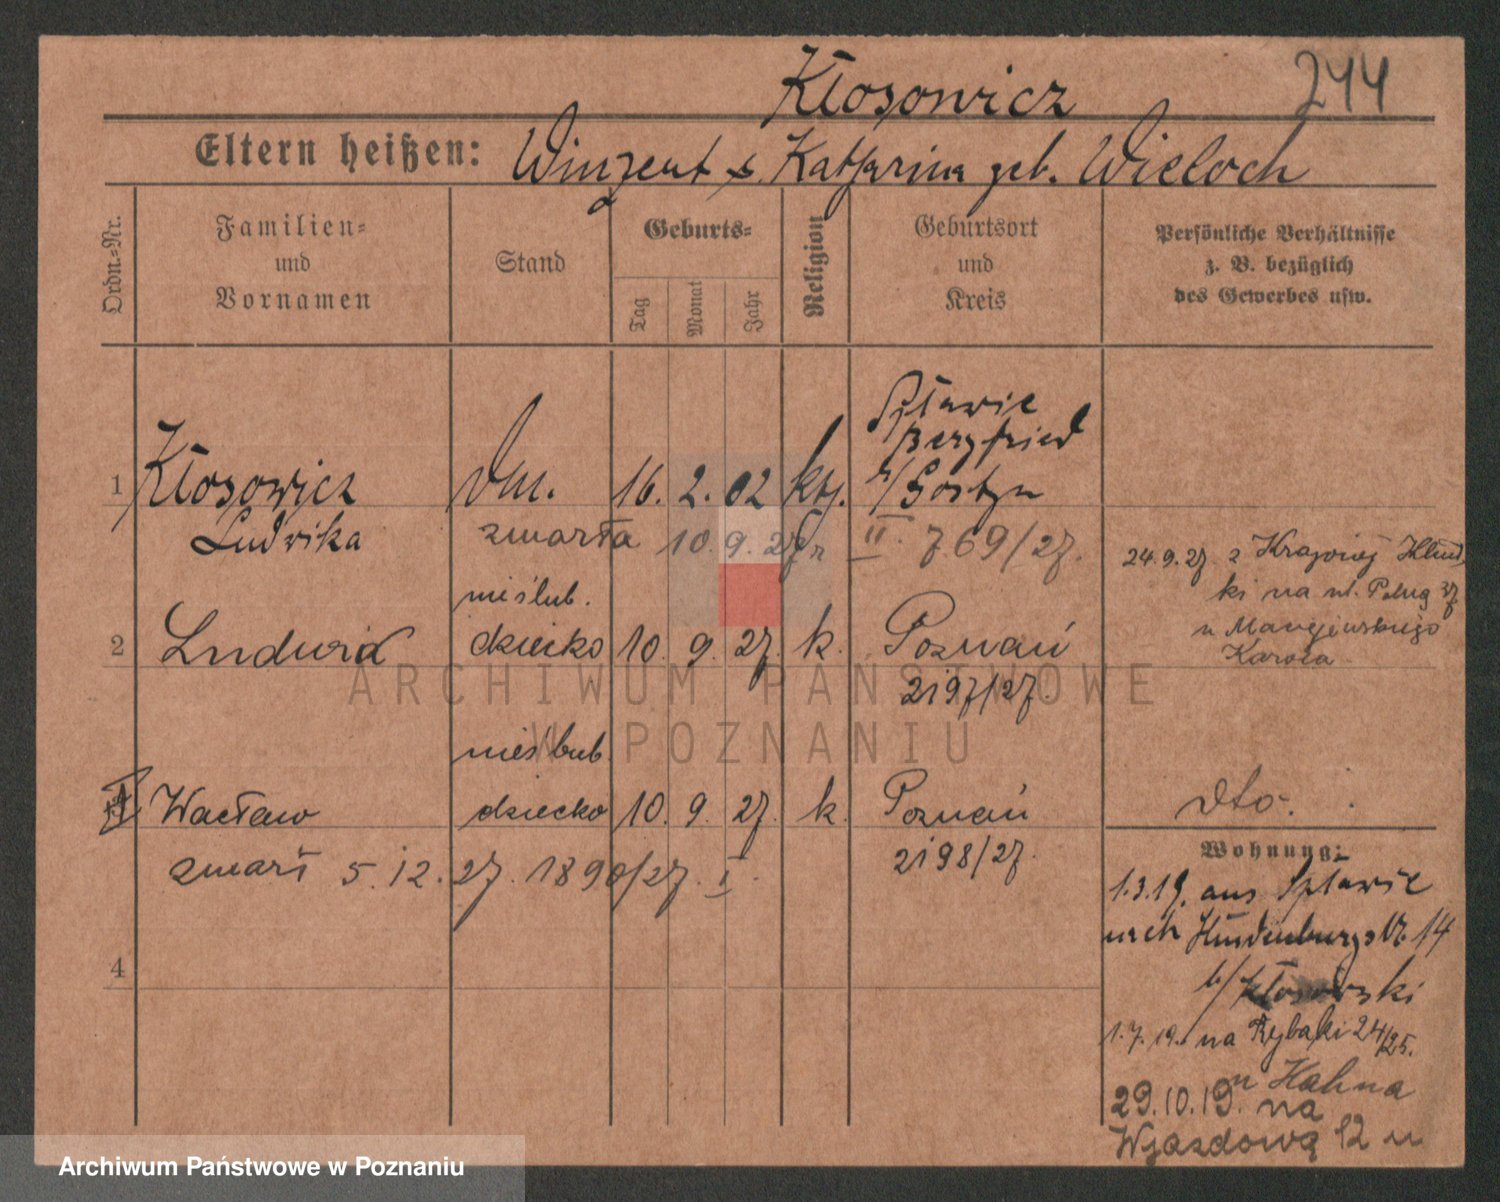 Kłosowicz 244
Eltern heißen: Winzent & Katharina geb. Wieloch
Ordn.-Nr.
Familien-
und
Vornamen
Stand
Geburts-
Tag
Monat
Jahr
Religion
Geburtsort
und
Kreis
Persönliche Verhältnisse
z. B. bezüglich
des Gewerbes usw.
Spławie
Bergfried
1 Kłosowicz 16. 2. 02 kth. Gostyn
Ludwika zmarła 10. 9. 27 II. 769/27.
24.9.27. z Krajowej
ki na ul.
u Maciejewskiego
Karola
nieślub.
2 Ludwid dziecko 10. 9. 27. k. Poznań
2197/27.
nieślub.
Wacław dziecko 10. 9. 27. k. Poznań
2198/27.
dto.
zmarł 5.12.27. 1890/27. I.
Wohnung:
1.3.19. aus Spławie
nach Hindenburgstr. 14
b/ Kłosowski
4
1.7.19. na Rybaki 24/25.
u Hahna
29.10.19. na
Wjazdową 12 u
ARCHIWUM PAŃSTWOWE
W POZNANIU
Archiwum Państwowe w Poznaniu